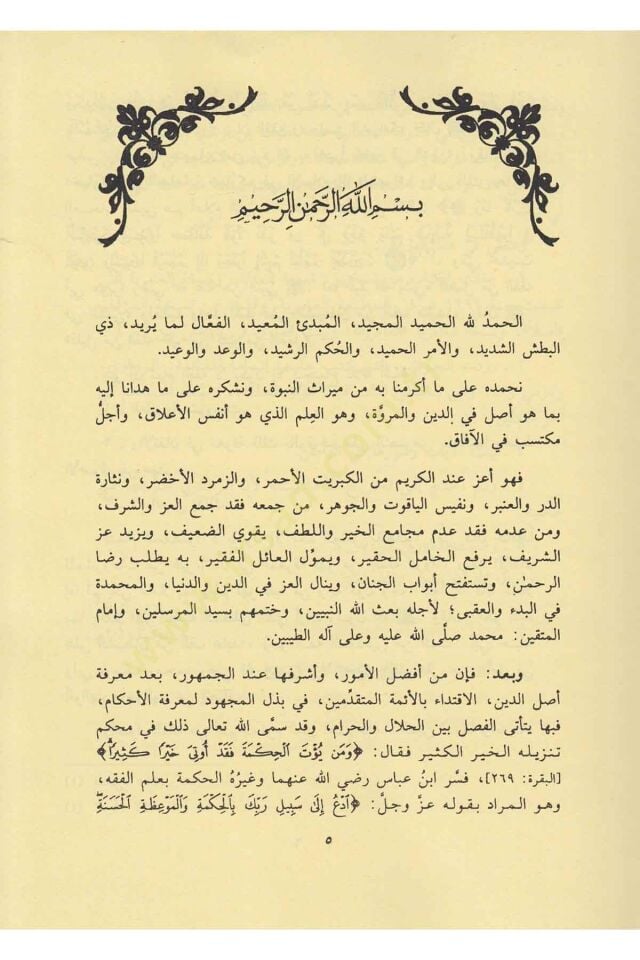 بِسْمِ اللَّهِ الرَّحْمَٰنِ الرَّحِيمِ
الحمدُ لله الحميد المجيد، المُبدئ المُعيد، الفعَّال لما يُريد، ذي
البطش الشديد، والأمر الحميد، والحُكم الرشيد، والوعد والوعيد.
نحمده على ما أكرمنا به من ميراث النبوة، ونشكره على ما هدانا إليه
بما هو أصل في الدين والمروَّة، وهو العِلم الذي هو أنفس الأعلاق، وأجلُّ
مكتسب في الآفاق.
فهو أعز عند الكريم من الكبريت الأحمر، والزمرد الأخضر، ونثارة
الدر والعنبر، ونفيس الياقوت والجوهر، من جمعه فقد جمع العز والشرف،
ومن عدمه فقد عدم مجامع الخير واللطف، يقوي الضعيف، ويزيد عز
الشريف، يرفع الخامل الحقير، ويموِّل العائل الفقير، به يطلب رضا
الرحمٰن، وتستفتح أبواب الجنان، وينال العز في الدين والدنيا، والمحمدة
في البدء والعقبى؛ لأجله بعث الله النبيين، وختمهم بسيد المرسلين، وإمام
المتقين: محمد صلَّى الله عليه وعلى آله الطيبين.
وبعد: فإن من أفضل الأمور، وأشرفها عند الجمهور، بعد معرفة
أصل الدين، الاقتداء بالأئمة المتقدِّمين، في بذل المجهود لمعرفة الأحكام،
فبها يتأتى الفصل بين الحلال والحرام، وقد سمَّى الله تعالى ذلك في محكم
تنزيله الخير الكثير فقال: ﴿وَمَن يُؤْتَ الْحِكْمَةَ فَقَدْ أُوتِيَ خَيْرًا كَثِيرًا﴾
[البقرة: ٢٦٩]، فسَّر ابنُ عباس رضي الله عنهما وغيرُهُ الحكمة بعلم الفقه،
وهو المراد بقوله عزَّ وجلَّ: ﴿ادْعُ إِلَىٰ سَبِيلِ رَبِّكَ بِالْحِكْمَةِ وَالْمَوْعِظَةِ الْحَسَنَةِ
٥